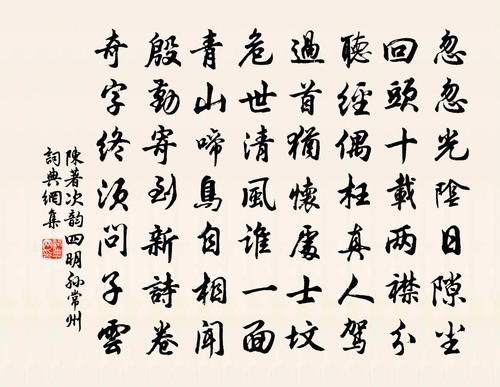 忽忽光陰日隙尘
回頭十載兩襟分
聽經偶枉真人駕
過首猶懷處士墳
危世清風誰一面
青山啼鳥自相聞
殷勤寄到新詩卷
奇字終須問子雲
陳著次韵四明孙常州
詞典網集